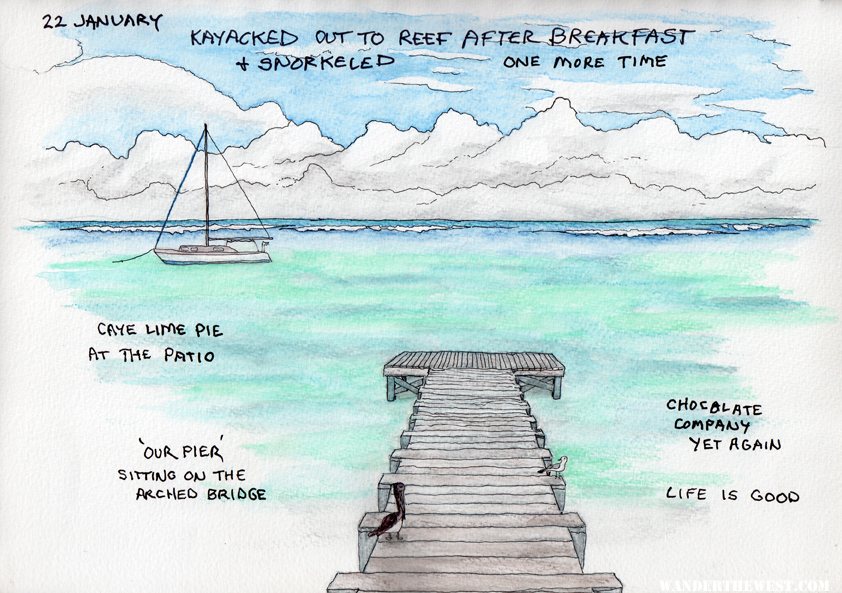 22 JANUARY
KAYACKED OUT TO REEF AFTER BREAKFAST
+ SNORKELED ONE MORE TIME
CAYE LIME PIE
AT THE PATIO
'OUR PIER'
SITTING ON THE
ARCHED BRIDGE
CHOCOLATE
COMPANY
YET AGAIN
LIFE IS GOOD
WANDERTHEWEST.COM